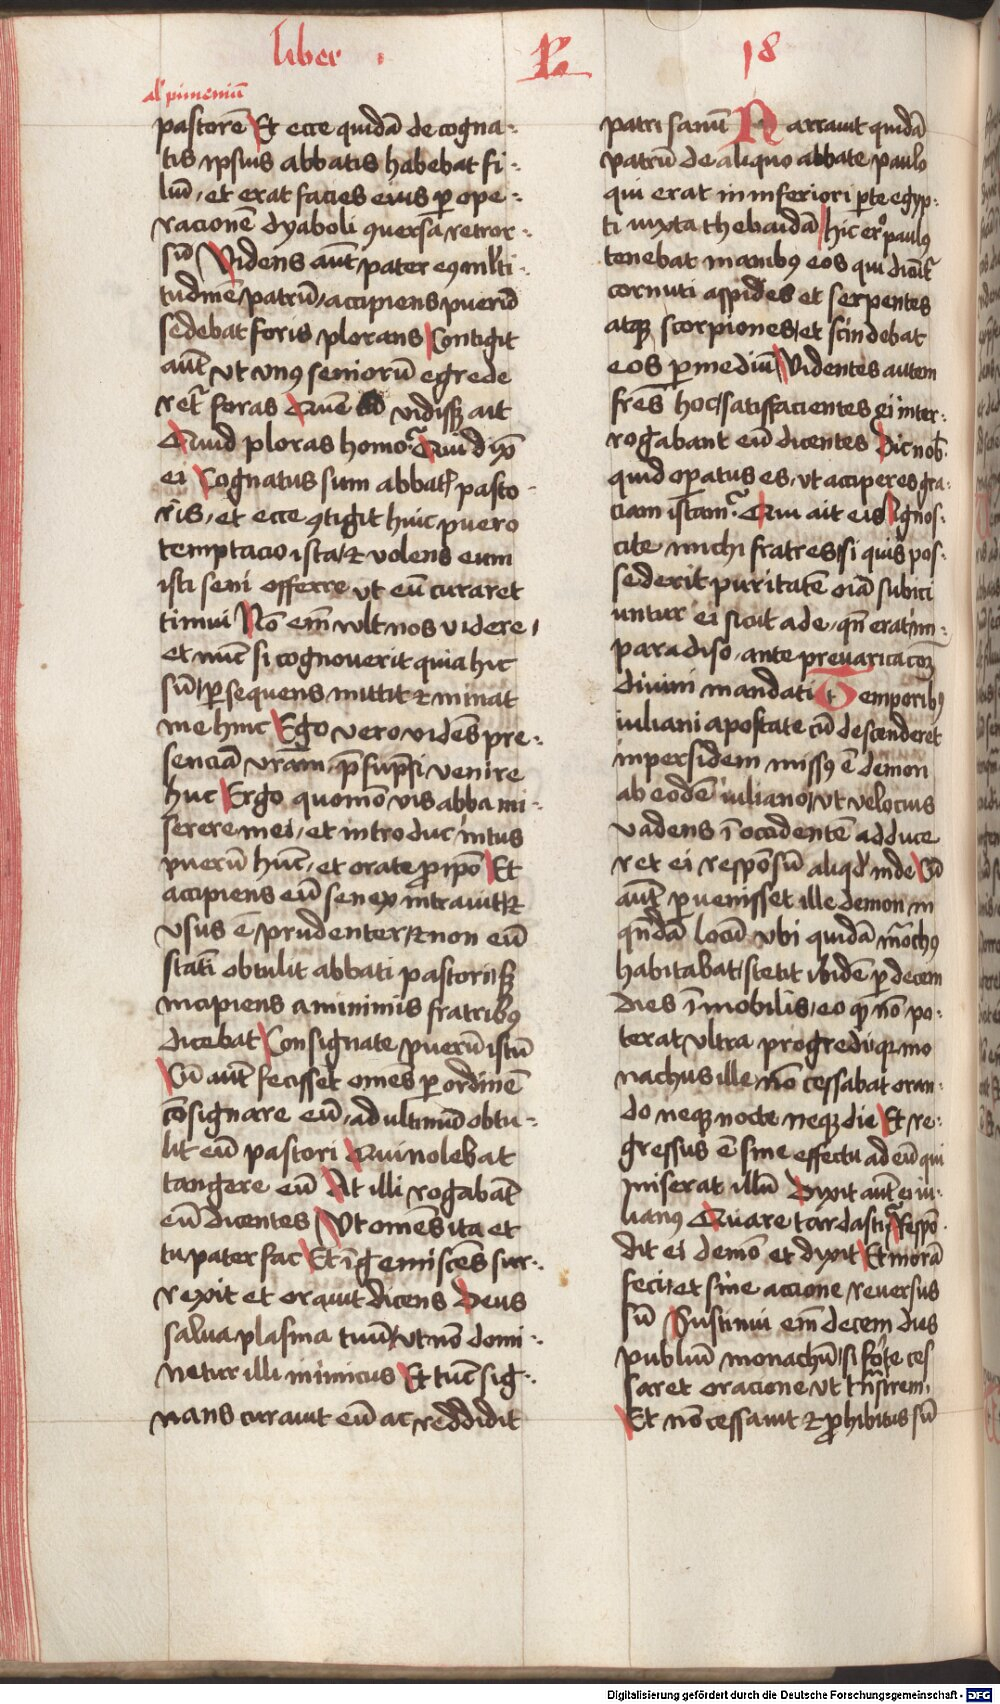 liber . P 18
al' pimeniū
pastorē Et ecce quidā de cogna-
tis ipsius abbatis habebat fi-
liū, et erat facies eius p ope-
racionē dyaboli 9uersa retror-
sū Videns aūt pater eq mlti-
tudinē patrū, accipiens puerū
sedebat foris plorans Contigit
aūt vt vn9 seniorū egrede
ret' foras Quē vidissꝫ ait
Quid ploras homo? Qui dix
ei Cognatus sum abbat' pasto-
ris, et ecce 9tigit huic puero
temptacio ista et volens eum
isti seni offerre vt eū curaret
timui Nō em̄ vult nos videre,
et nūc si cognouerit quia hic
sū psequens mittit et minat
me hinc Ego vero vidēs pre-
senciā vrām p̄supsi venire
huc Ergo quomō vis abba mi-
serere mei, et introduc intus
puerū hūc, et orate pro ipō Et
accipiens eū senex intrauit et
vsus ē prudenter et non eū
statī obtulit abbati pastori sꝫ
incipiens a minimis fratribꝰ
dicebat Consignate puerū istū
Cū aūt fecisset om̄es p ordinē
cōsignare eū, ad ultimū obtu-
lit eū pastori Qui nolebat
tangere eū At illi rogabāt
eū dicentes Vt om̄es ita et
tu pater fac Et īgemiscēs sur-
rexit et orauit dicens Deus
salua plasma tuū vt nō domi-
netur illi inimicus Et tūc sig-
nans curauit eū ac reddidit
patri sanū Narrauit quidā
patrū de aliquo abbate paulo
qui erat in inferiori pte egyp-
ti iuxta thebaidā hic er° paulꝰ
tenebat manibꝰ eos qui dicūt'
cornuti aspides et serpentes
atqꝫ scorpiones et scindebat
eos p mediū Videntes autem
frēs hoc satisfacientes ei inter-
rogabant eū dicentes Dic nob'
quid opatus es, vt acciperes gra-
ciam istam? Qui ait eis Ignos-
cite michi fratres si quis pos-
sederit puritatē oīa subici
untur ei sicut ade, qn̄ erat in
paradiso, ante preuaricacōꝫ
diuini mandati Temporibꝰ
iuliani apostate cū descenderet
in persidem missꝰ ē demon
ab eodē iuliano, vt velocius
vadens ī occidentē adduce
ret ei respōsū aliqd inde Cū
aūt puenisset ille demon in
qndā locū vbi quidā mōchꝰ
habitabat stetit ibidē p decem
dies īmobilis, eo qꝫ nō po-
terat vltra progredi qꝛ mo
nachus ille nō cessabat oran-
do neqꝫ nocte neqꝫ die Et re-
gressus ē sine effectu ad eū qui
miserat illū Dixit aūt ei iu-
lianꝰ Quare tardasti? Respō-
dit ei demō et dixit Et morā
feci et sine accione reuersus
sū Sustinui em̄ decem dies
publiū monachū si forte ces
saret oracione vt t̄nsirem,
Et nō cessauit et prohibitus sū
Digitalisierung gefördert durch die Deutsche Forschungsgemeinschaft - DFG